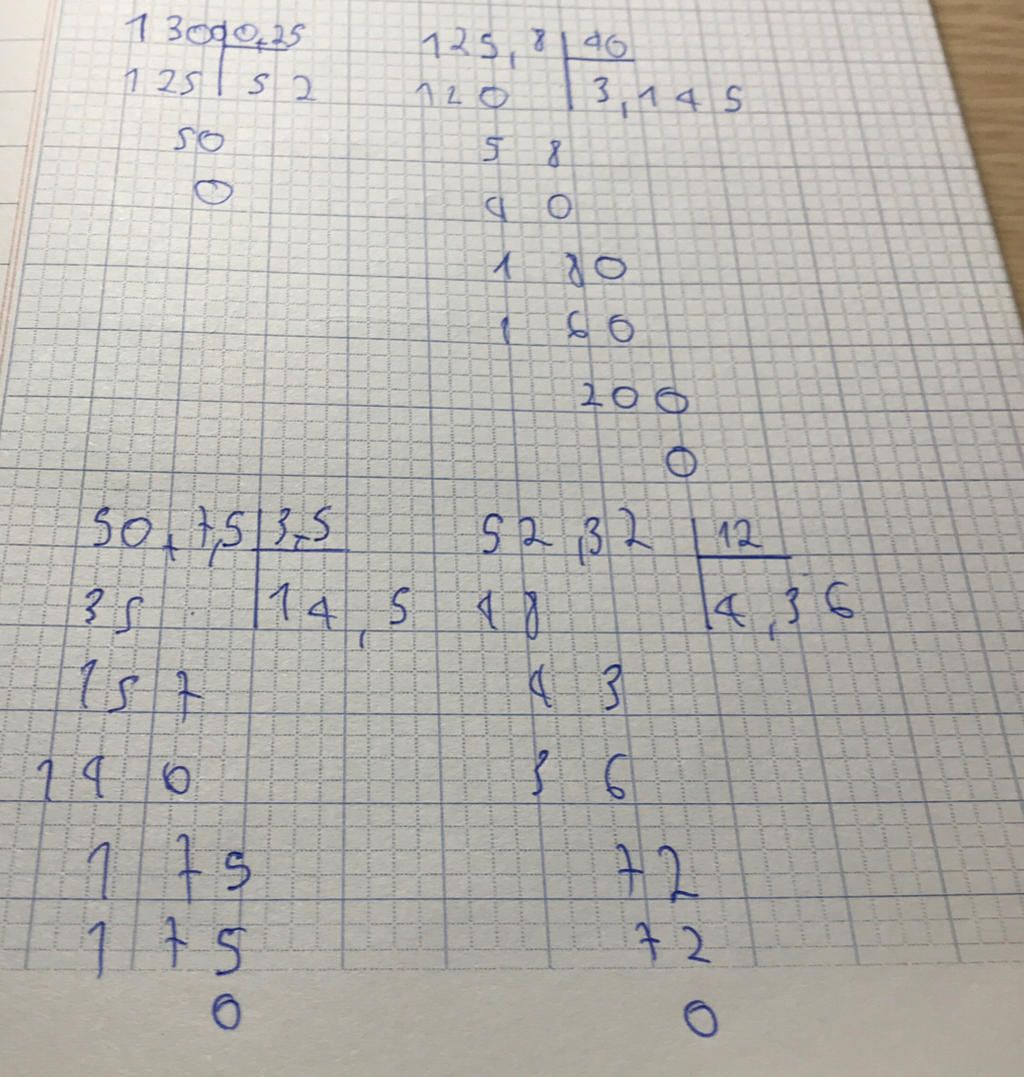 1300 0,25
125 52
50
0
125,8 40
120 3,145
5 8
4 0
1 80
1 60
200
0
50,7,5 3,5
35 14,5
15 7
14 0
1 75
1 75
0
52,32 12
48 4,36
4 3
3 6
72
72
0